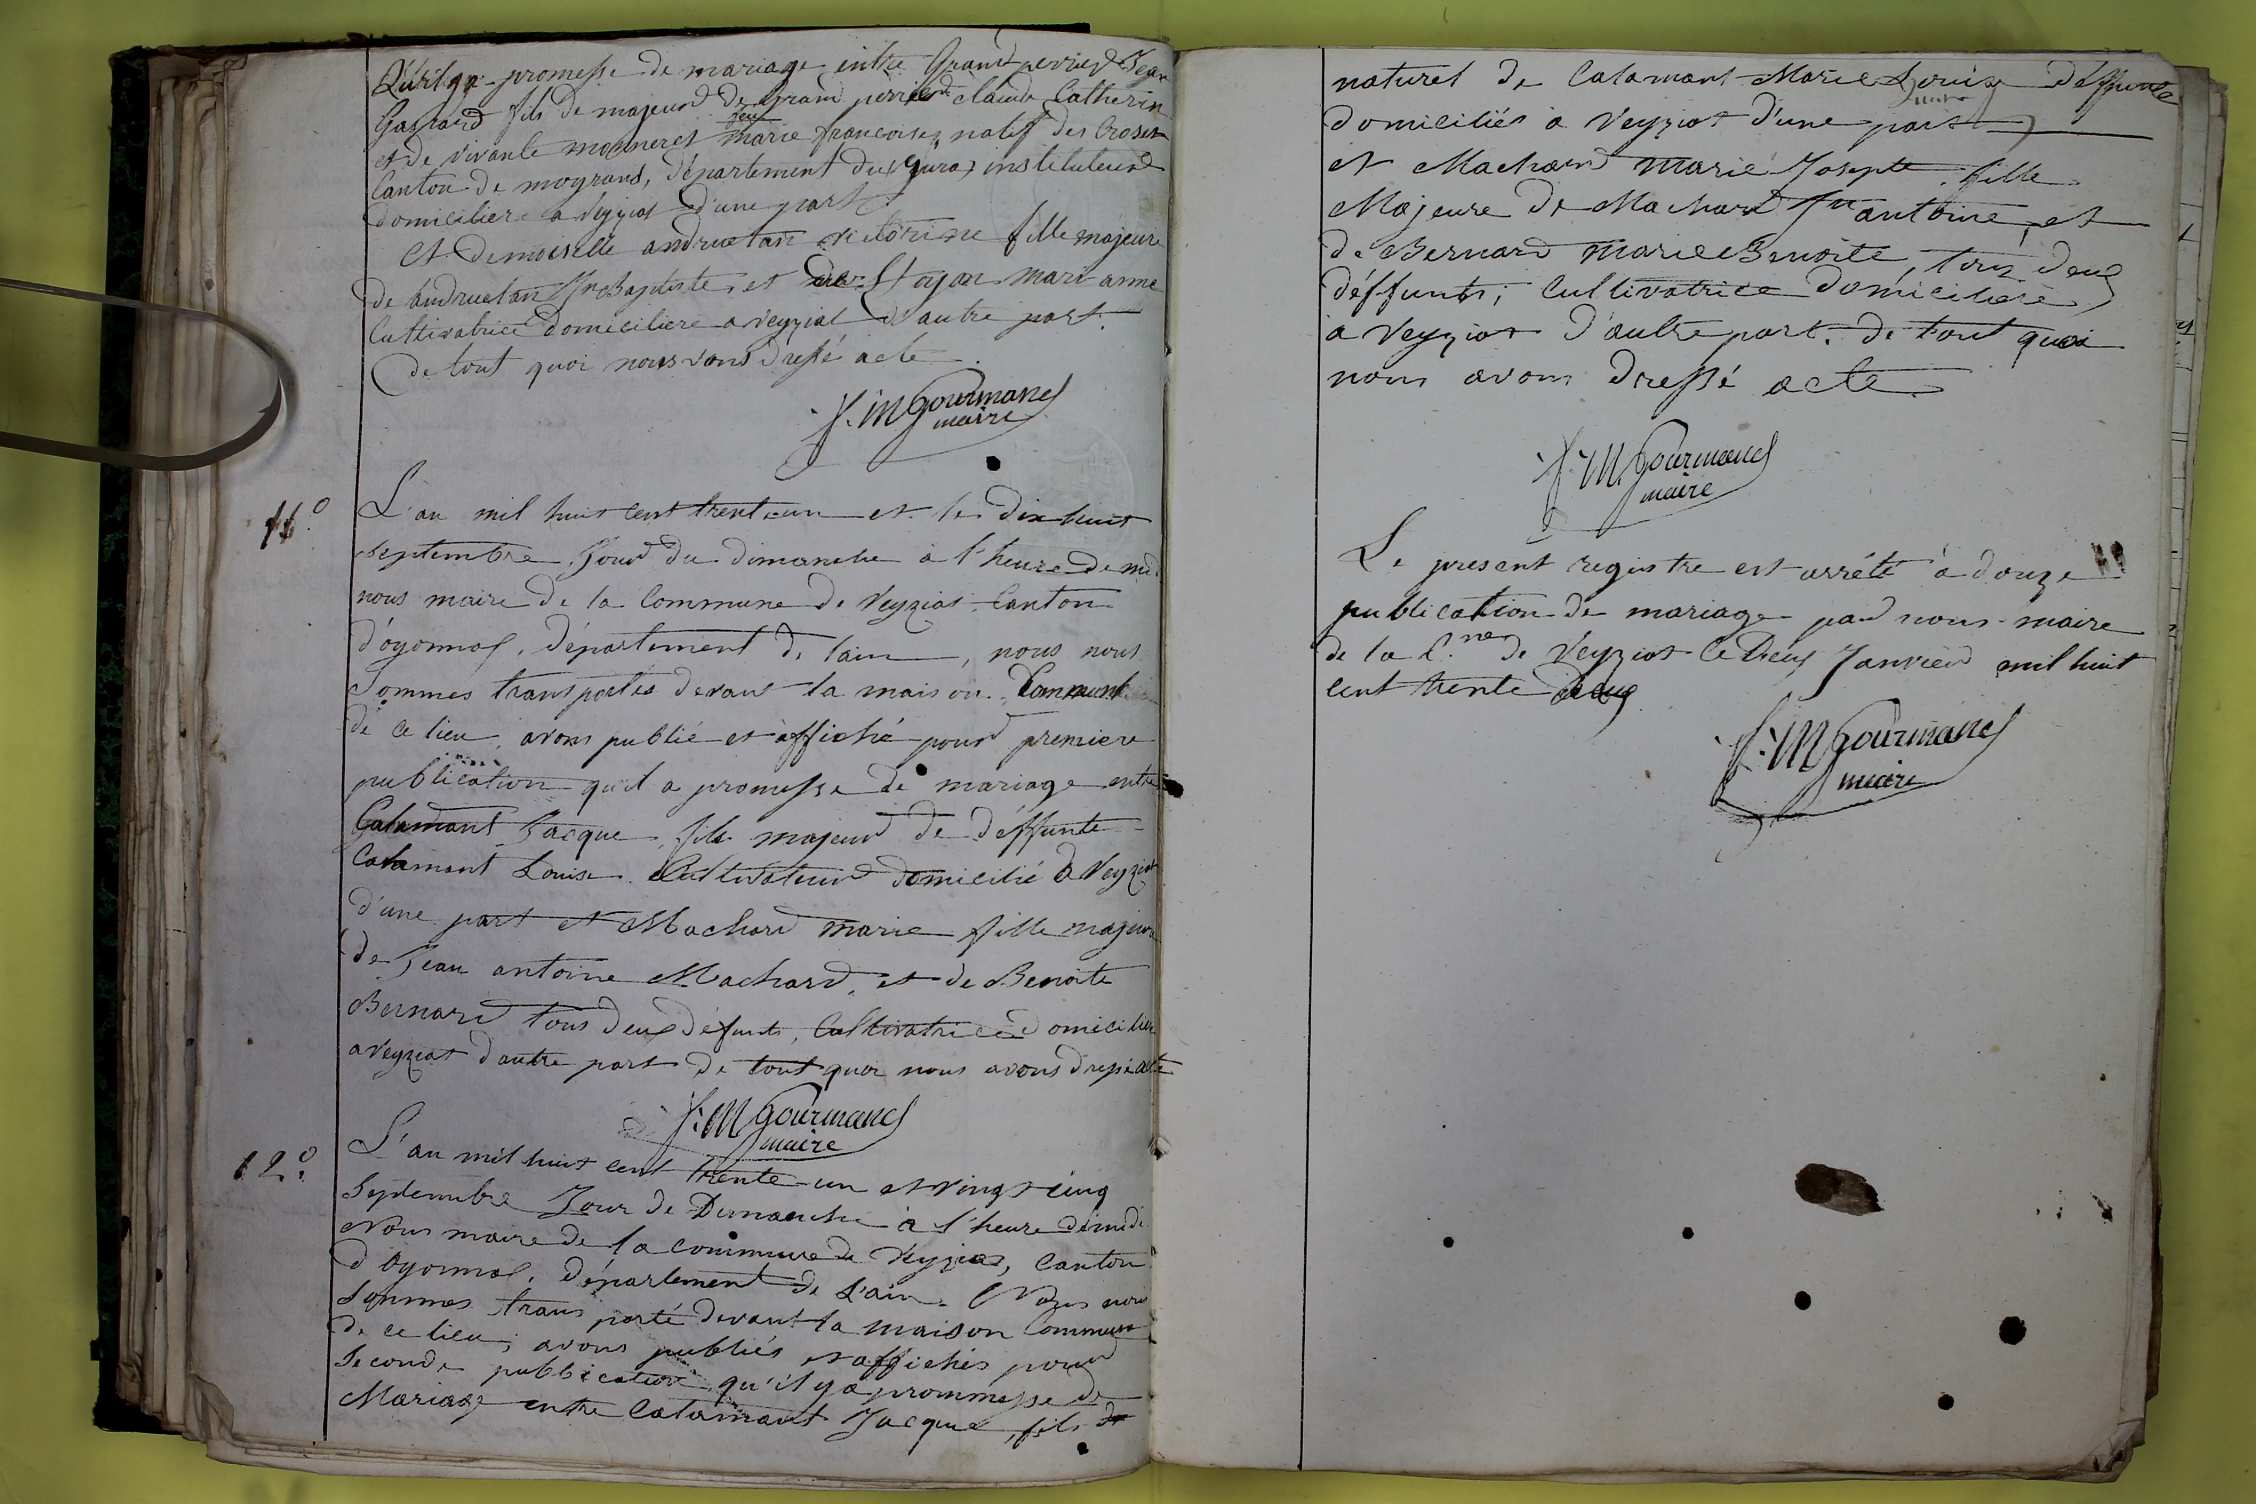 qu'il y a promesse de mariage entre Grand perrier Jean
Gaspard fils de majeur de Grand perrier claude Catherin
et de vivante monneret feu marie francoise, natif des Crosets
Canton de moyrans, département du Jura, instituteur
domiciliere a Veyziat d'une part
et demoiselle andruetan victorine fille majeure
de andruetan Jn Baptiste, et de marianne
Cultivatrice domiciliere a veyziat d'autre part.
de tout quoi nous vons dressé acte
J. M Gourmand
maire
11.°
L'an mil huit cent trente un et le dix huit
septembre Jour du dimanche a l'heure de midi
nous maire de la Commune de Veyziat Canton
d'oyonnax, département de lain, nous nous
sommes transportés devant la maison Commune
de ce lieu, avons publié et affiché pour premiere
publication qu'il a promesse de mariage entre
Calamant Jacque, fils majeur de deffunte
Calamant Louise Cultivateur domicilié a Veyziat
d'une part et Machard marie fille majeure
de Jean antoine Machard, et de Benoite
Bernard tous deux défunts, Cultivatrice domiciliere
a veyziat d'autre part de tout quoi nous avons dressé acte
J. M Gourmand
maire
12.°
L'an mil huit cent trente un et vingt cinq
Septembre Jour de Dimanche à l'heure de midi
Nous maire de la commune de Veyziat, Canton
d'Oyonnax, département de L'ain. Nous nous
sommes transporté devant la maison Commune
de ce lieu, avons publiés et affichés pour
Seconde publication qu'il y a prommesse de
Mariage entre Calamant Jacque, fils de
naturel de Calamant Marie Louise deffunte
domiciliés a Veyziat d'une part
et Machard Marie Josepte fille
Majeure de Machard Jn antoine, et
de Bernard Marie Benoite, tous deux
déffunts, Cultivatrice domiciliere
a Veyziat d'autre part. de tout quoi
nous avons dressé acte.
J. M. Gourmand
maire
Le present registre est arrêté à douze
publication de mariage par nous maire
de la C.ne de Veyziat le deux Janvier mil huit
cent trente deux
J. M Gourmand
maire